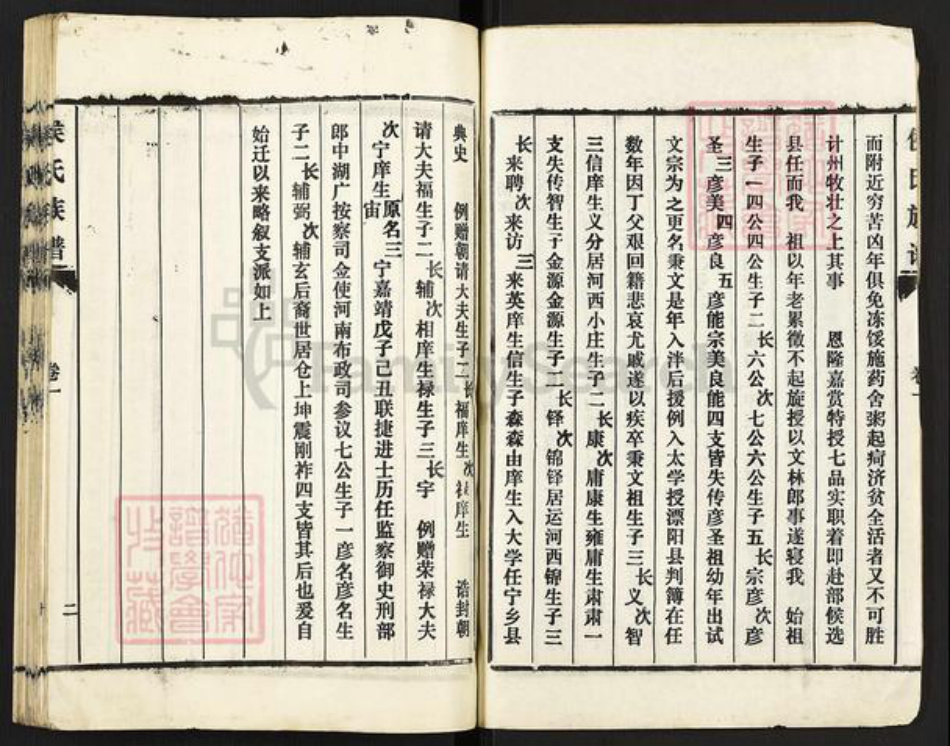 而附近穷苦凶年俱免冻馁施药舍粥起疴济贫全活者又不可胜
计州牧壮之上其事 恩隆嘉赏特授七品实职着即赴部候选
县任而我 祖以年老累徵不起旋授以文林郎事遂寝我 始祖
生子一四公四公生子二长六公次七公六公生子五长宗彦次彦
圣三彦美四彦良五彦能宗美良能四支皆失传彦圣祖幼年出试
文宗为之更名秉文是年入泮后援例入太学授漂阳县判簿在任
数年因丁父艰回籍悲哀尤戚遂以疾卒秉文祖生子三长义次智
三信庠生义分居河西小庄生子二长康次庸康生雍庸生肃肃一
支失传智生子金源金源生子二长铎次锦铎居运河西锦生子三
长来聘次来访三来英庠生信生子森森由庠生入大学任宁乡县
典史 例赠朝请大夫生子二长福庠生次禄庠生 诰封朝
请大夫福生子二长辅次相庠生禄生子三长宇 例赠荣禄大夫
次宁庠生原名宙三宁嘉靖戊子己丑联捷进士历任监察御史刑部
郎中湖广按察司佥使河南布政司参议七公生子一彦名彦名生
子二长辅弼次辅玄后裔世居仓上坤震刚祚四支皆其后也爰自
始迁以来略叙支派如上
侯氏族谱
卷一
二
FamilySearch